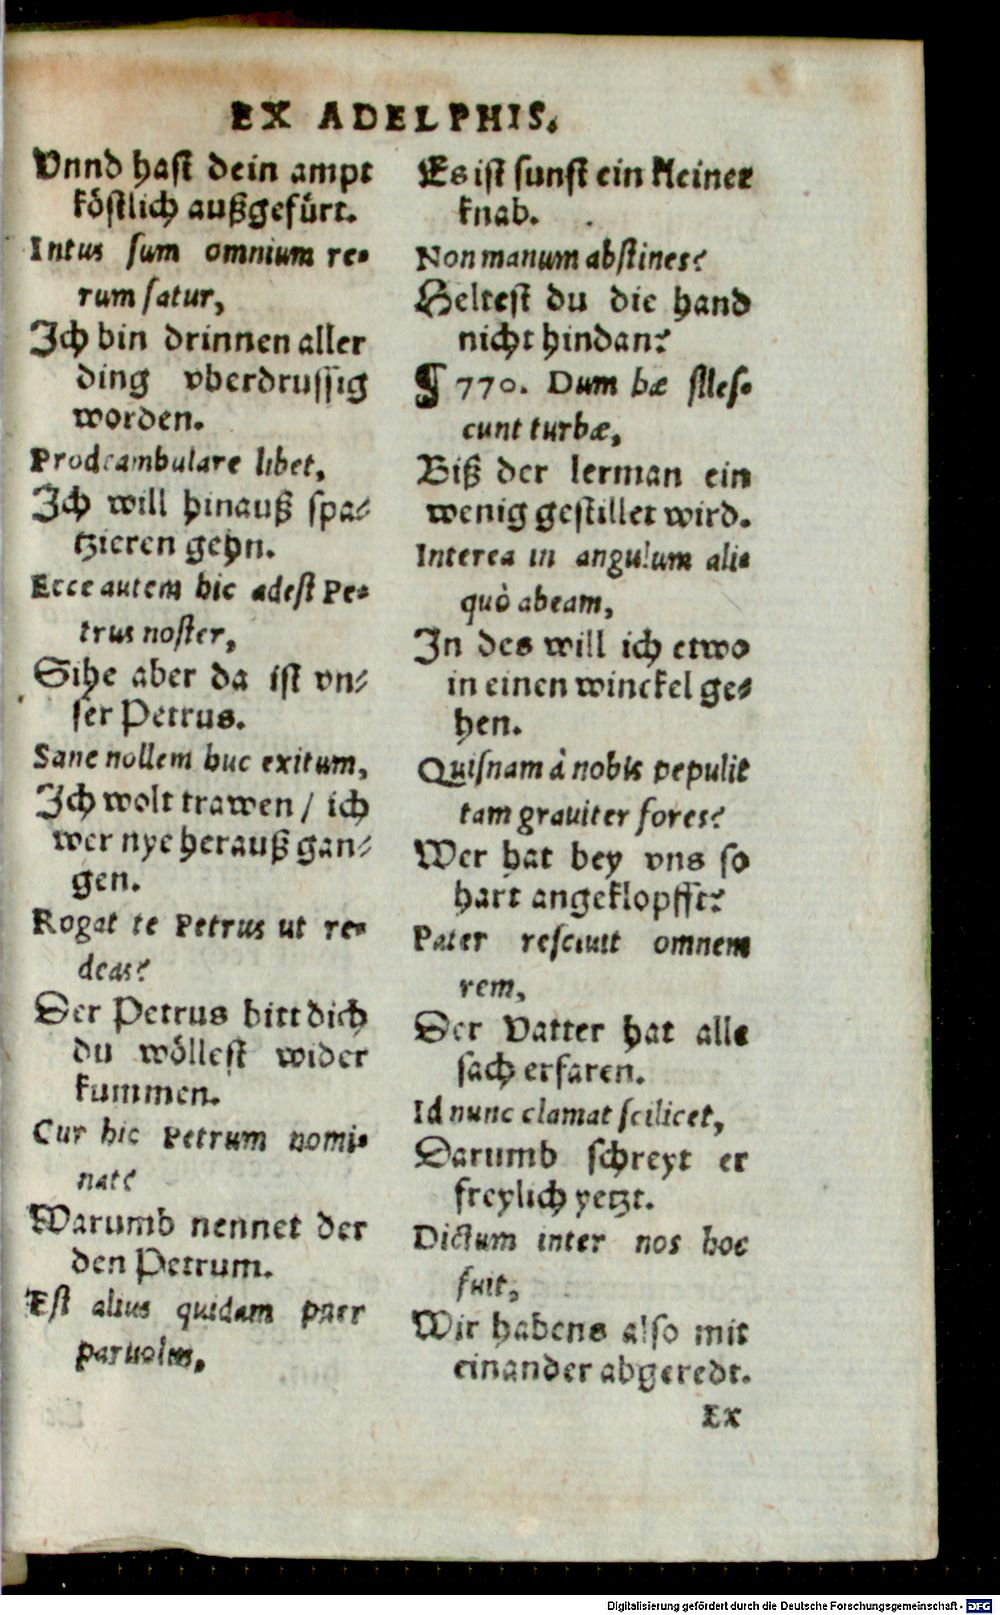 EX ADELPHIS.
Vnnd hast dein ampt
köstlich außgefürt.
Intus sum omnium re-
rum satur,
Ich bin drinnen aller
ding vberdrussig
worden.
Prodeambulare libet,
Ich will hinauß spa-
tzieren gehn.
Ecce autem hic adest Pe-
trus noster,
Sihe aber da ist vn-
ser Petrus.
Sane nollem huc exitum,
Ich wolt trawen / ich
wer nye herauß gan-
gen.
Rogat te Petrus ut re-
deas?
Der Petrus bitt dich
du wöllest wider
kummen.
Cur hic Petrum nomi-
nat?
Warumb nennet der
den Petrum.
Est alius quidam puer
paruolus,
Es ist sunst ein kleiner
knab.
Non manum abstines?
Heltest du die hand
nicht hindan?
¶ 770. Dum hæ siles-
cunt turbæ,
Biß der lerman ein
wenig gestillet wird.
Interea in angulum ali-
quò abeam,
In des will ich etwo
in einen winckel ge-
hen.
Quisnam à nobis pepulit
tam grauiter fores?
Wer hat bey vns so
hart angeklopfft?
Pater resciuit omnem
rem,
Der Vatter hat alle
sach erfaren.
Id nunc clamat scilicet,
Darumb schreyt er
freylich yetzt.
Dictum inter nos hoc
fuit,
Wir habens also mit
einander abgeredt.
Ex
Digitalisierung gefördert durch die Deutsche Forschungsgemeinschaft - DFG